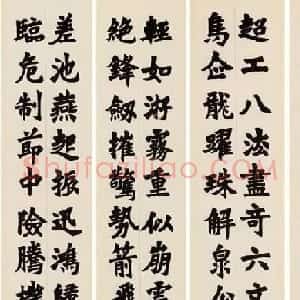 超工八法盡奇六文
鳥企龍躍珠解泉分
輕如游霧重似崩雲
絕鋒劒摧驚勢箭飛
差池燕起振迅鴻歸
臨危制節中險騰機
Shufaziliao.COM